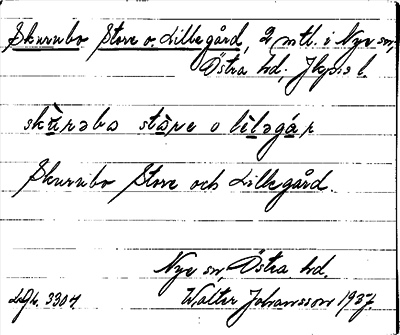 Skurubo Store o. Lillegård, 2 mtl. i Nye sn,
Östra hd; Jkps l.
skúrəbo stóre o lìləgár
Skurubo Store och Lillegård.
Nye sn, Östra hd.
LGr. 3304. Walter Johansson 1937.